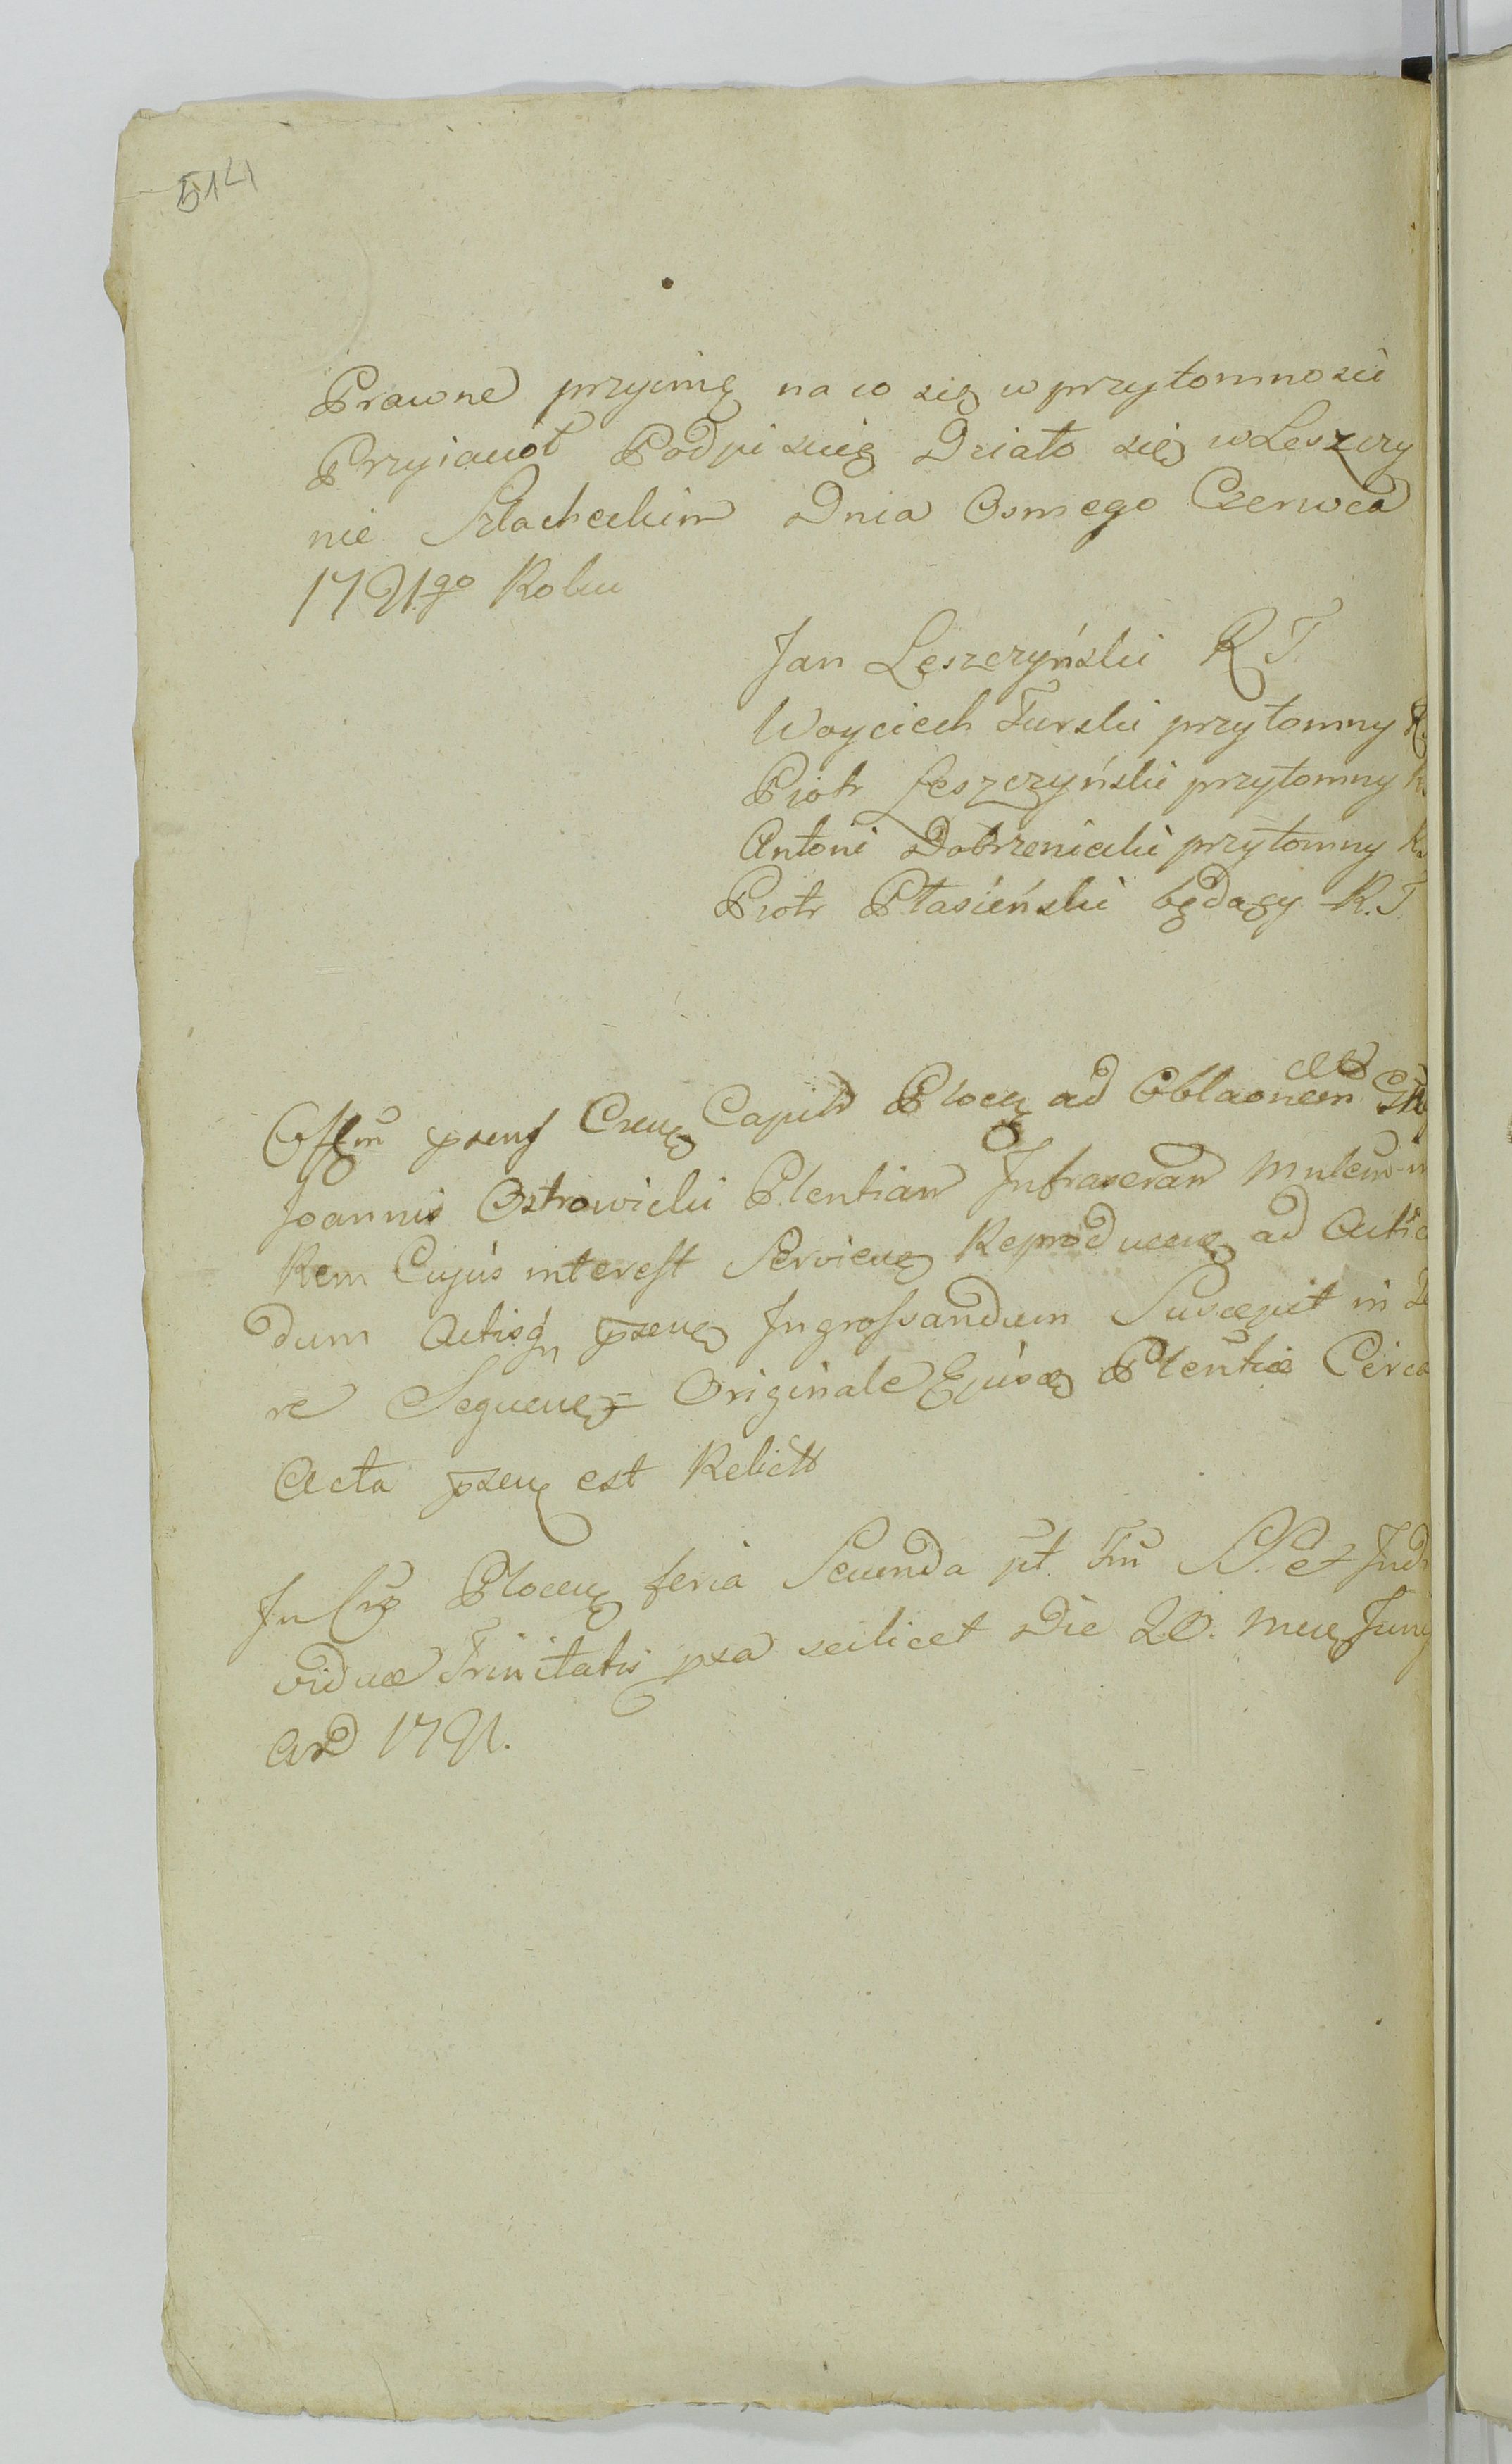 514
Prawne przyimę na co się w przytomnosci
Przyiaciół Podpisuię Działo się w Leszczy
nie Szlacheckim Dnia Osmego Czerwca
1791go Roku
Jan Leszczyński R T
Woyciech Turski przytomny
Piotr Leszczyński przytomny
Antoni Dobrzenicki przytomny
Piotr Ptasieński będący R.T.
Offm psens Crens Capit Plocen ad Oblaonem
Joannis Ostrowicki Plentian Infrascran
Rem Cujus interest Serviens Reproducens ad
dum Actisq psens Ingrossandum Suscepit in
re Sequens Originale Ejusd Plentiæ Circa
Acta psens est Relict
In Plocens feria Secunda pt Sti et
viduæ Trinitatis pxa scilicet Die 20. Mens Juny
AD 1791.